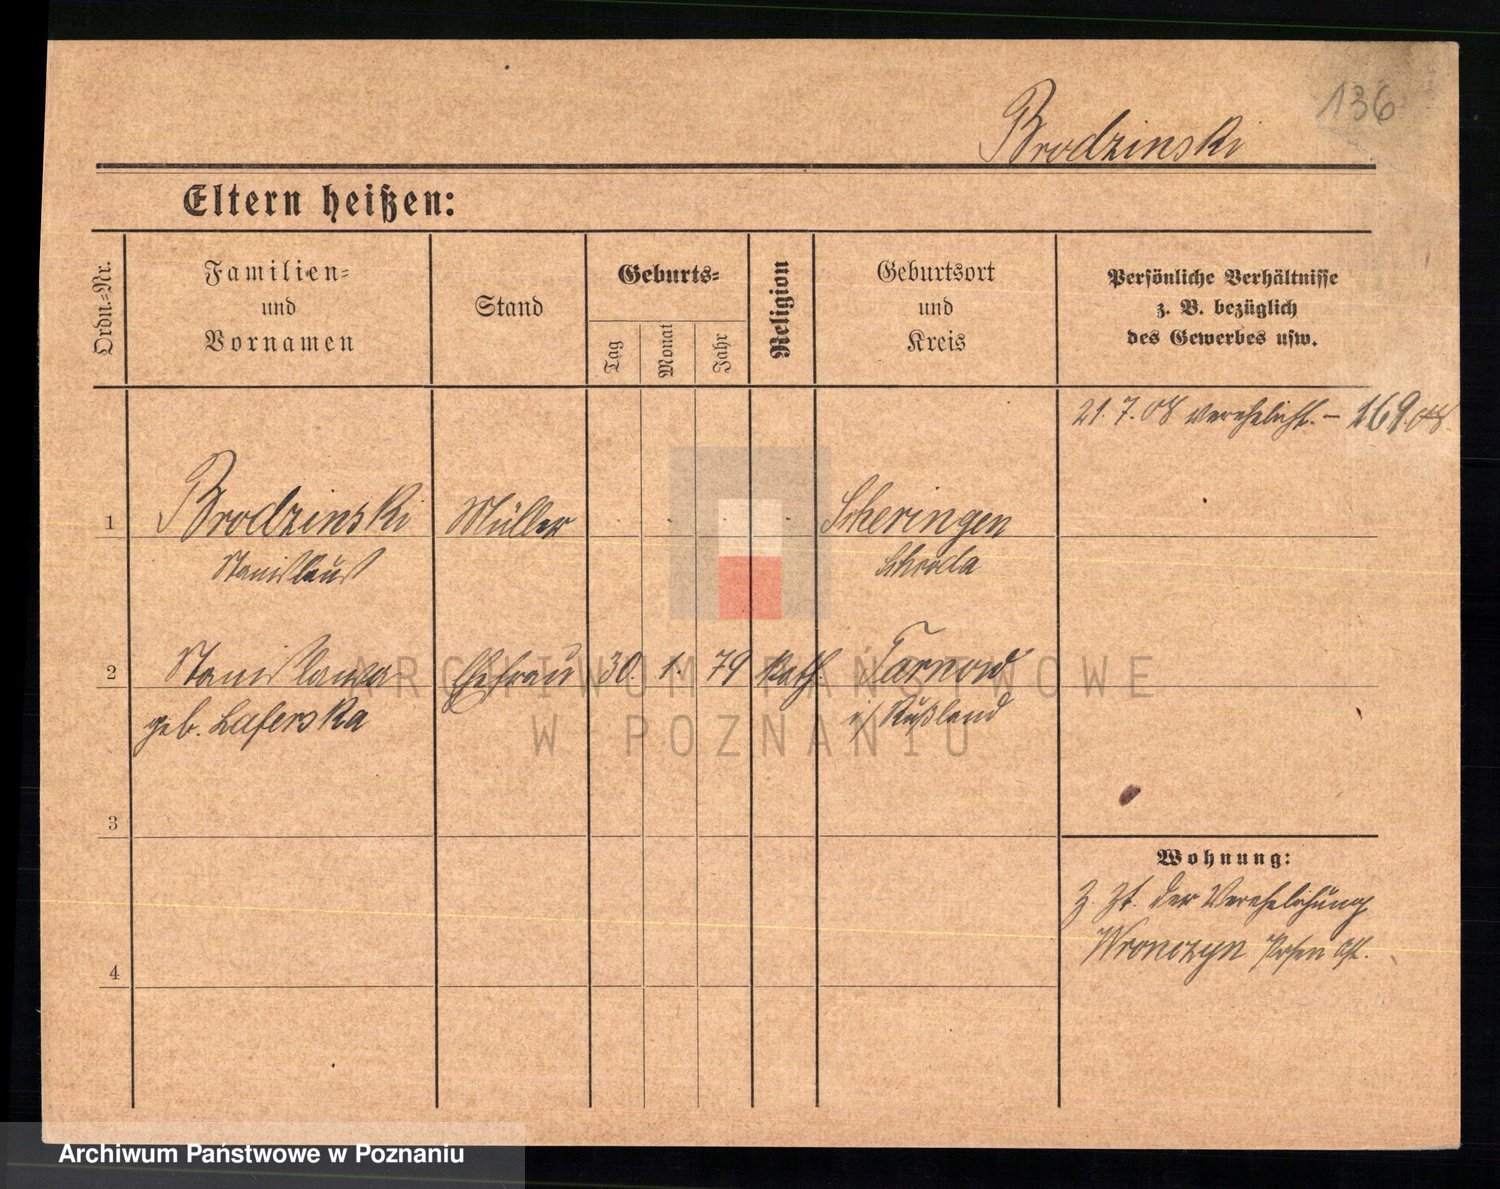 136
Brodzinski
Eltern heißen:
Ordn.-Nr.
Familien-
und
Vornamen
Stand
Geburts-
Tag
Monat
Jahr
Religion
Geburtsort
und
Kreis
Persönliche Verhältnisse
z. B. bezüglich
des Gewerbes usw.
21.7.08 verehelicht. – 169/08.
1
Brodzinski
Müller
Scheringen
Stanislaus
Schroda
2
Stanislawa
Ehefrau
30.
1.
79
kath.
Tarnow
geb. Laferska
i/ Rußland
3
Wohnung:
z. Zt. der Verehelichung
Wronczyn Posen Ost.
4
ARCHIWUM PAŃSTWOWE
W POZNANIU
Archiwum Państwowe w Poznaniu